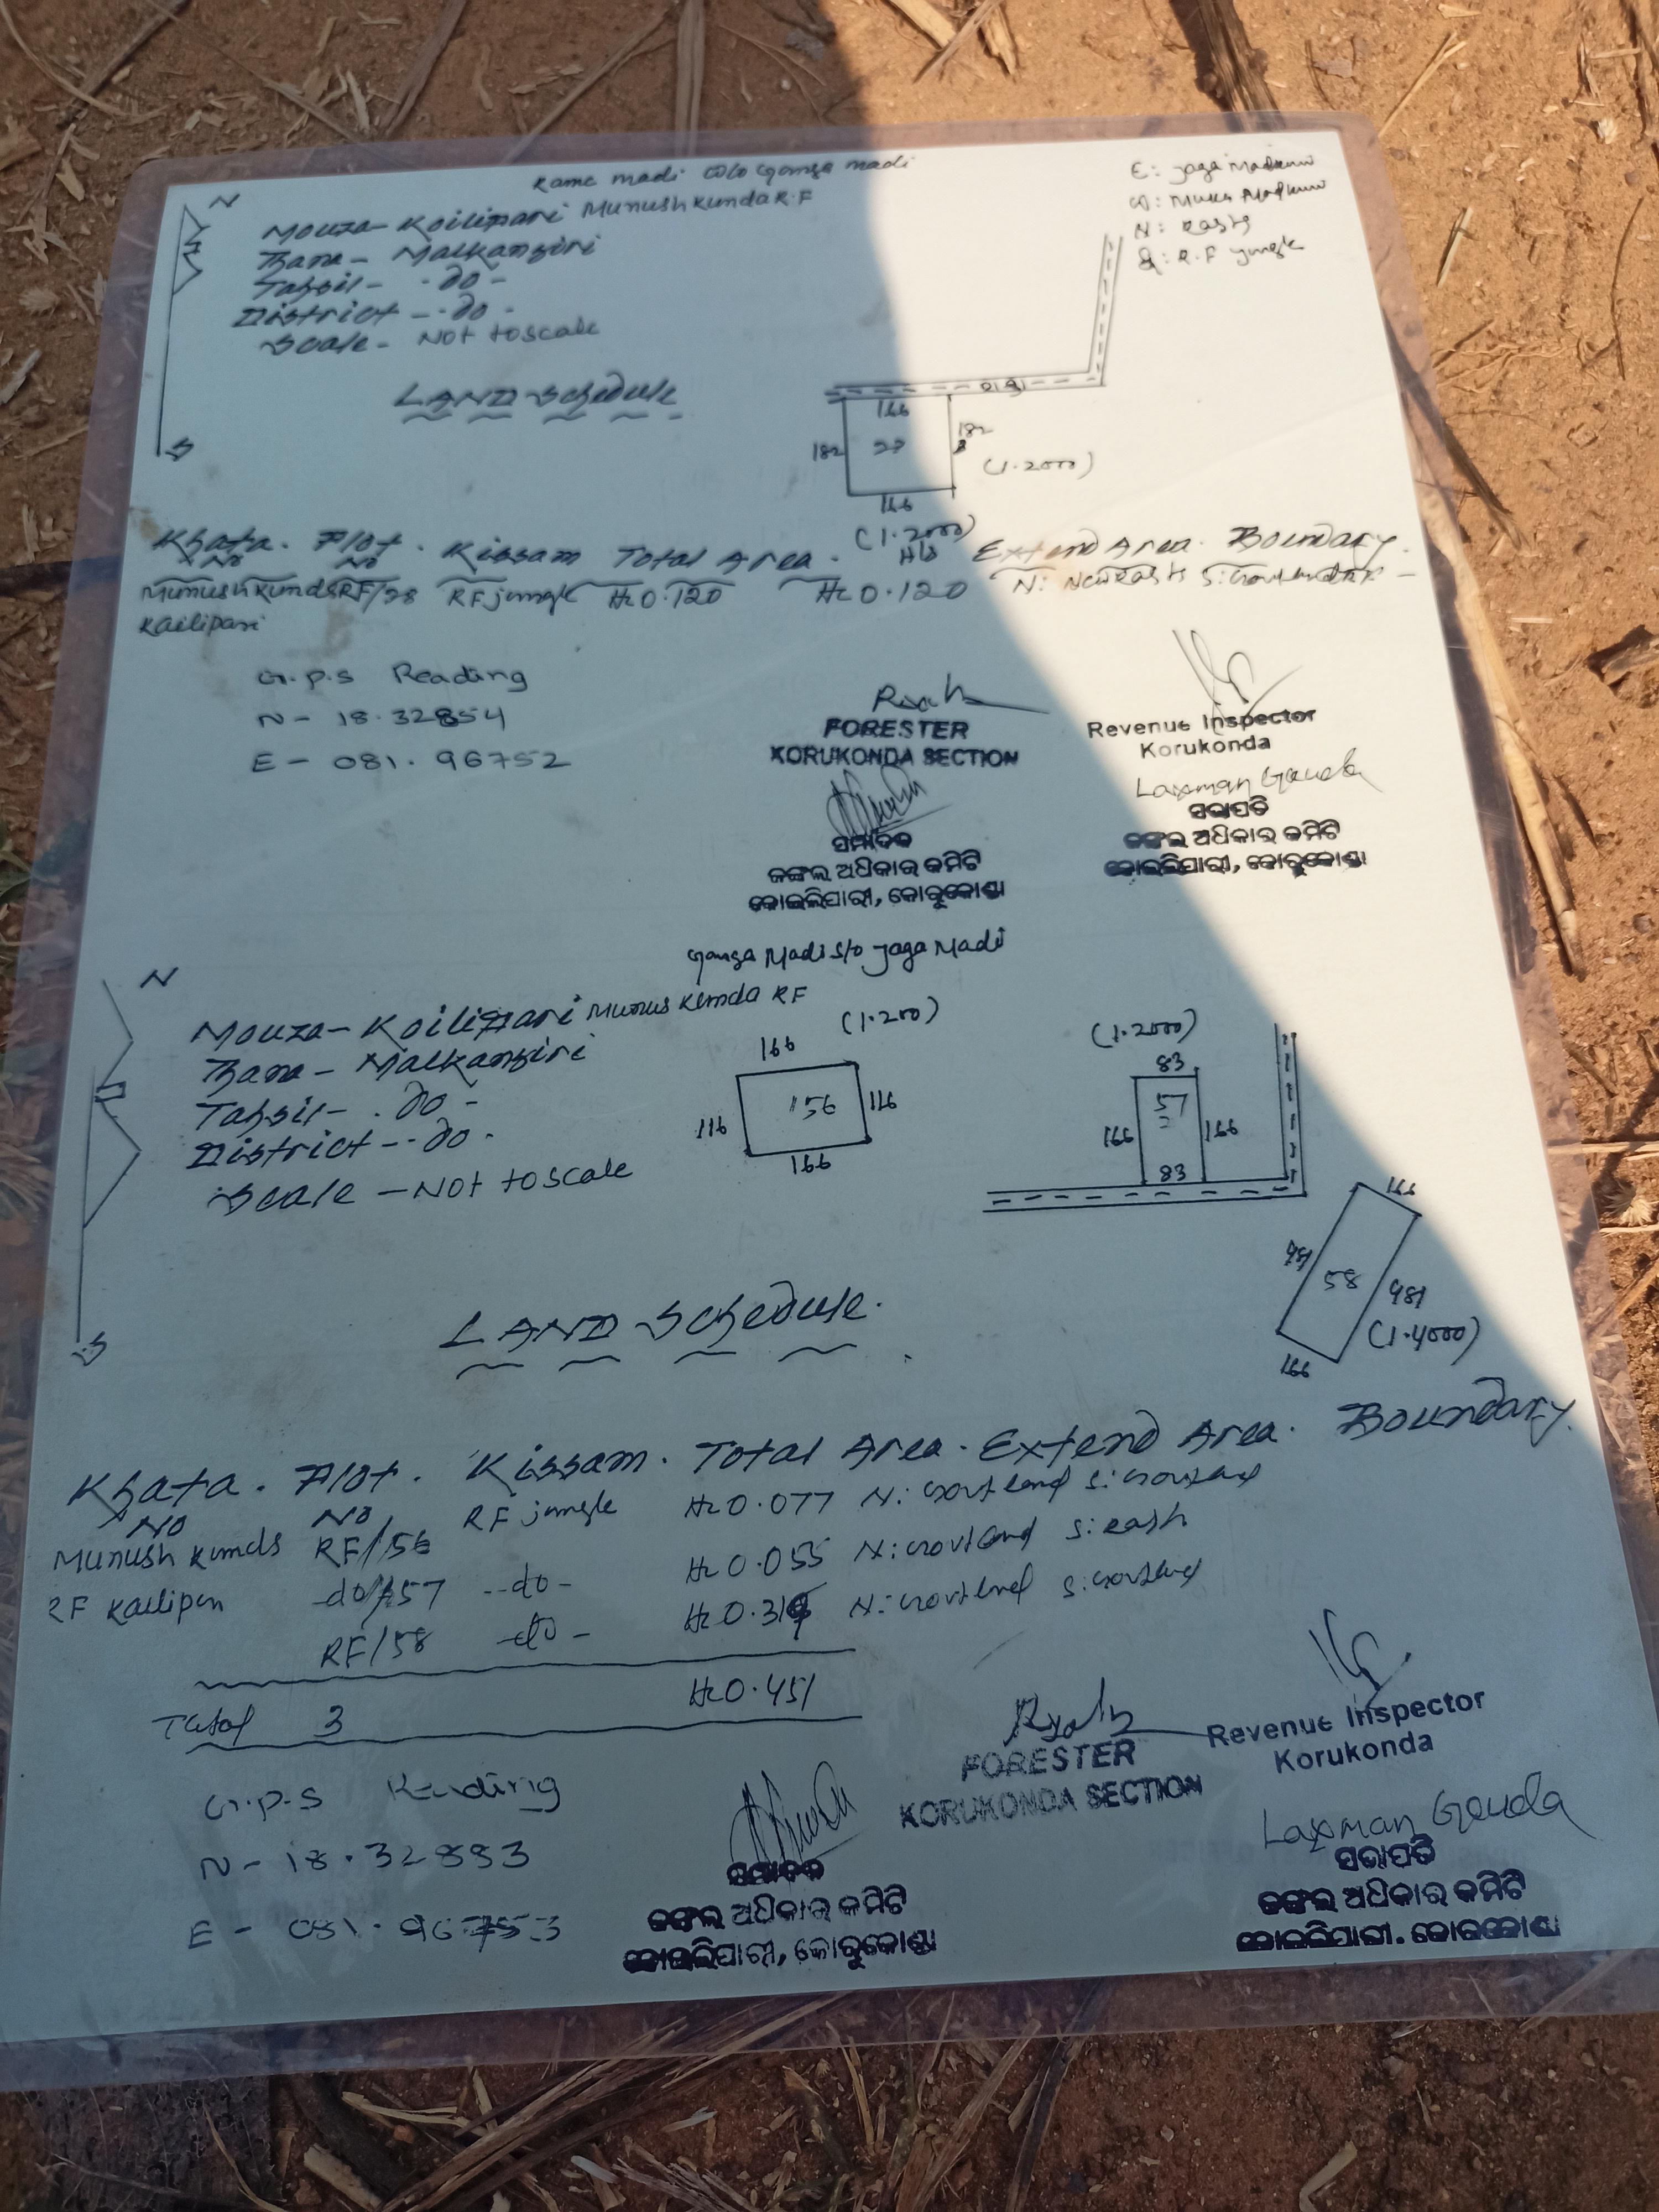 Rame madi W/o Ganga madi
Mouza- Koilipari Munushkunda R.F
Thana- Malkangiri
Tahsil- -do-
District - -do-
Scale- Not to scale
N
S
LAND Schedule
E: Jaga Madkami
W: Muka Madkami
N: Rasta
S: R.F jungle
166
182
182
28
166
(1.2000)
(1.2000)
Khata No. Plot No. Kissam Total Area. Extend Area. Boundary.
Munushkunda RF/28 RF jungle Hc 0.120 Hc 0.120 N: New Rasta S:
Kailipari
G.P.S Reading
N- 18.32854
E- 081.96752
FORESTER
KORUKONDA SECTION
Revenue Inspector
Korukonda
Laxman Gouda
ସମ୍ପାଦକ
ଜଙ୍ଗଲ ଅଧିକାର କମିଟି
କୋଇଲିପାରୀ, କୋରୁକୋଣ୍ଡା
ସଭାପତି
ଜଙ୍ଗଲ ଅଧିକାର କମିଟି
କୋଇଲିପାରୀ, କୋରୁକୋଣ୍ଡା
Ganga Madi S/o Jaga Madi
N
S
Mouza- Koilipari Munuskunda RF
Thana- Malkangiri
Tahsil- -do-
District- -do-
Scale - Not to scale
(1.200)
166
116
156
116
166
(1.2000)
83
57
166
166
83
166
481
58
481
(1.4000)
166
LAND Schedule.
Khata No. Plot No. Kissam. Total Area. Extend Area. Boundary.
Munush kunds RF/56 RF jungle Hc 0.077 N: Govt land S: Govt land
RF Kailipari do/57 -do- Hc 0.055 N: Govt land S: Rasta
RF/58 -do- Hc 0.319 N: Govt land S: Govt land
Total 3 Hc 0.451
G.P.S Reading
N- 18.32883
E- 081.96753
FORESTER
KORUKONDA SECTION
Revenue Inspector
Korukonda
Laxman Gouda
ସମ୍ପାଦକ
ଜଙ୍ଗଲ ଅଧିକାର କମିଟି
କୋଇଲିପାରୀ, କୋରୁକୋଣ୍ଡା
ସଭାପତି
ଜଙ୍ଗଲ ଅଧିକାର କମିଟି
କୋଇଲିପାରୀ, କୋରୁକୋଣ୍ଡା